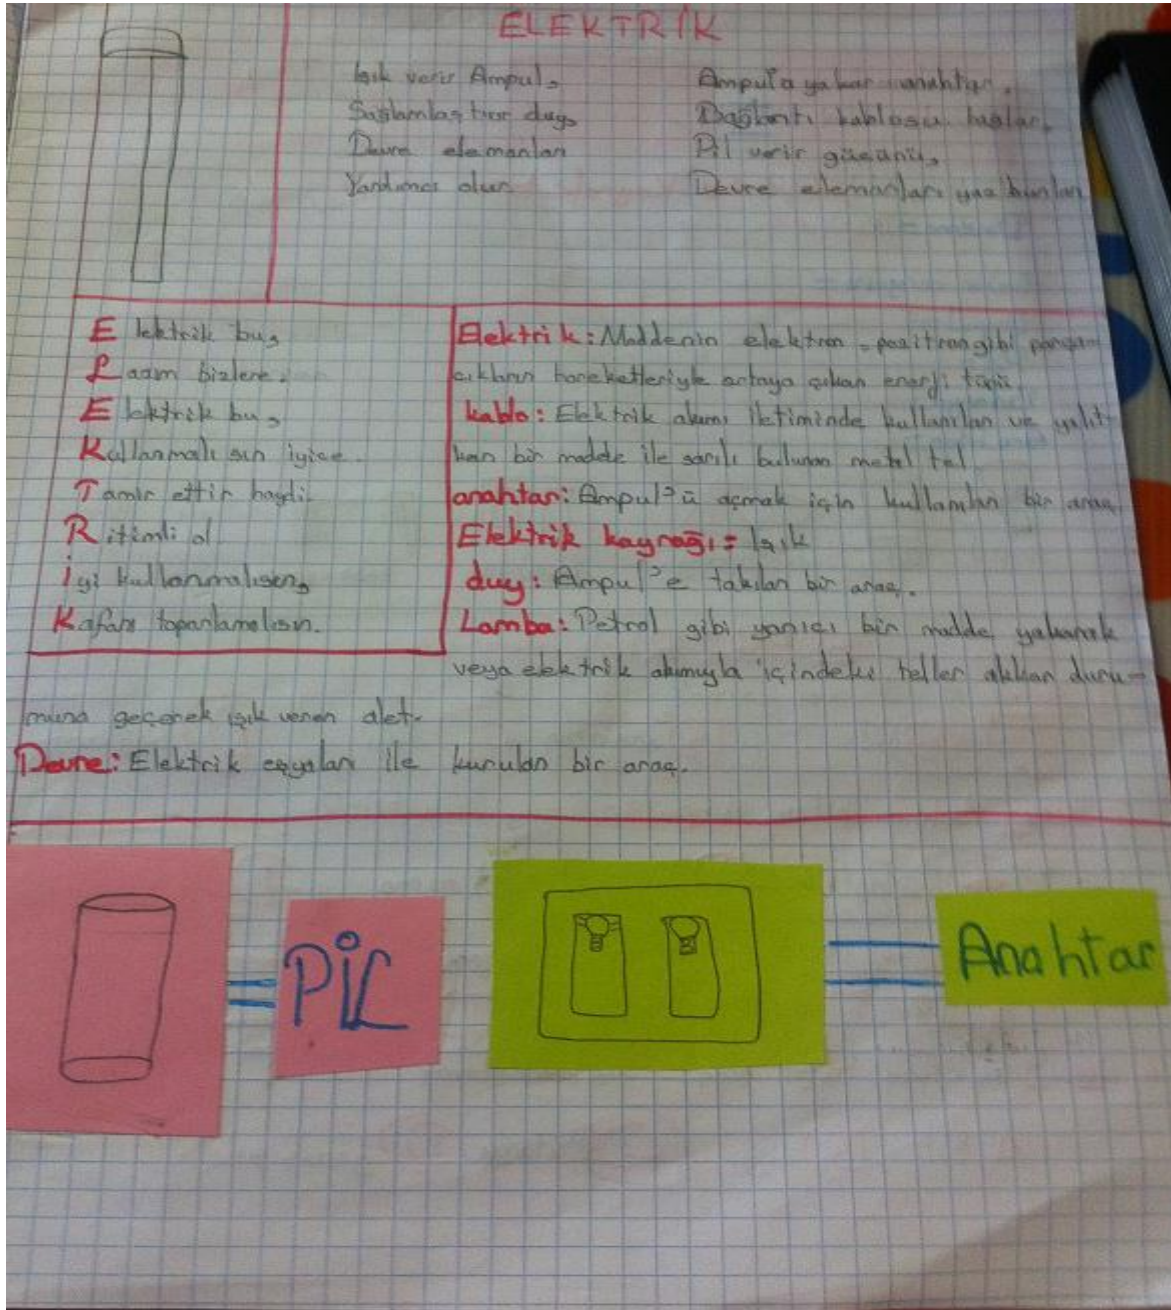 ELEKTRİK
Işık verir Ampul,
Sağlamlaştırır duy,
Devre elemanları
Yardımcı olur
Ampul'a yakar anahtar.
Bağlantı kablosu bağlar,
Pil verir gücünü,
Devre elemanları yaz bunları
Elektrik bu,
Lazım bizlere.
Elektrik bu,
Kullanmalısın iyice.
Tamir ettir haydi.
Ritimli ol
İyi kullanmalısın,
Kafanı toparlamalısın.
Elektrik: Maddenin elektron - pozitron gibi parça-
cıkların hareketleriyle ortaya çıkan enerji türü.
kablo: Elektrik akımı iletiminde kullanılan ve yalıt-
kan bir madde ile sarılı bulunan metal tel.
anahtar: Ampul'ü açmak için kullanılan bir araç.
Elektrik kaynağı = Işık
duy: Ampul'e takılan bir araç.
Lamba: Petrol gibi yanıcı bir madde yakarak
veya elektrik akımıyla içindeki teller akkan duru-
muna geçerek ışık veren alet.
Devre: Elektrik eşyaları ile kurulan bir araç.
PİL
Anahtar